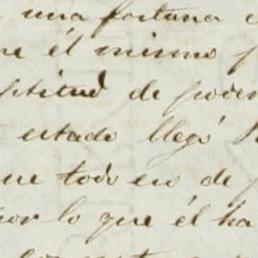 una fortuna
él mismo
ptitud de poder
estado llegó
ue todo eso de
por lo que él ha